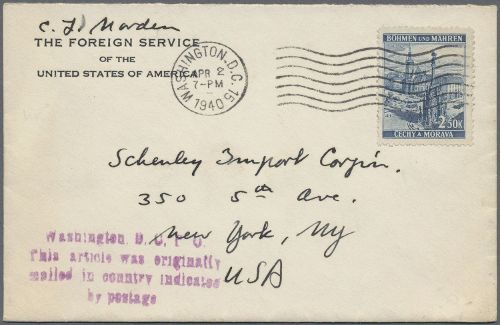 C H Morden
THE FOREIGN SERVICE
OF THE
UNITED STATES OF AMERICA
WASHINGTON, D.C. 15
APR 2
7-PM
1940
BÖHMEN UND MÄHREN
2.50K
ČECHY A MORAVA
Schenley Import Corpin.
350 5th Ave.
New York, NY
USA
Washington D. C. P O.
This article was originally
mailed in country indicated
by postage